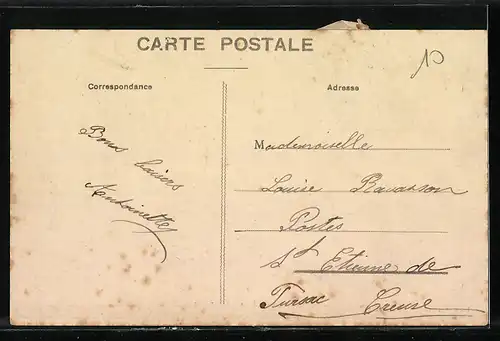 CARTE POSTALE
10
Correspondance
Adresse
Bons baisers
Antoinette
Mademoiselle
Louise Ravasson
Postes
St Etienne de
Fursac Creuse